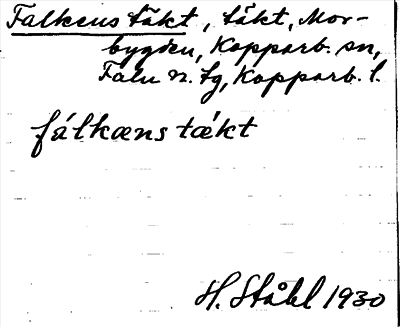 Falkens täkt, täkt, Mor-
bygden, Kopparb. sn,
Falu n. tg, Kopparb. l.
fálkæns tǽkt
H. Ståhl 1930